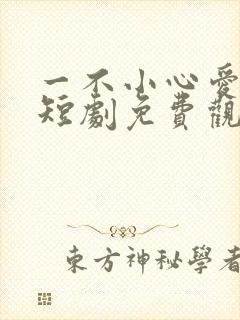 一不小心愛
短劇免費觀
東方神秘學者